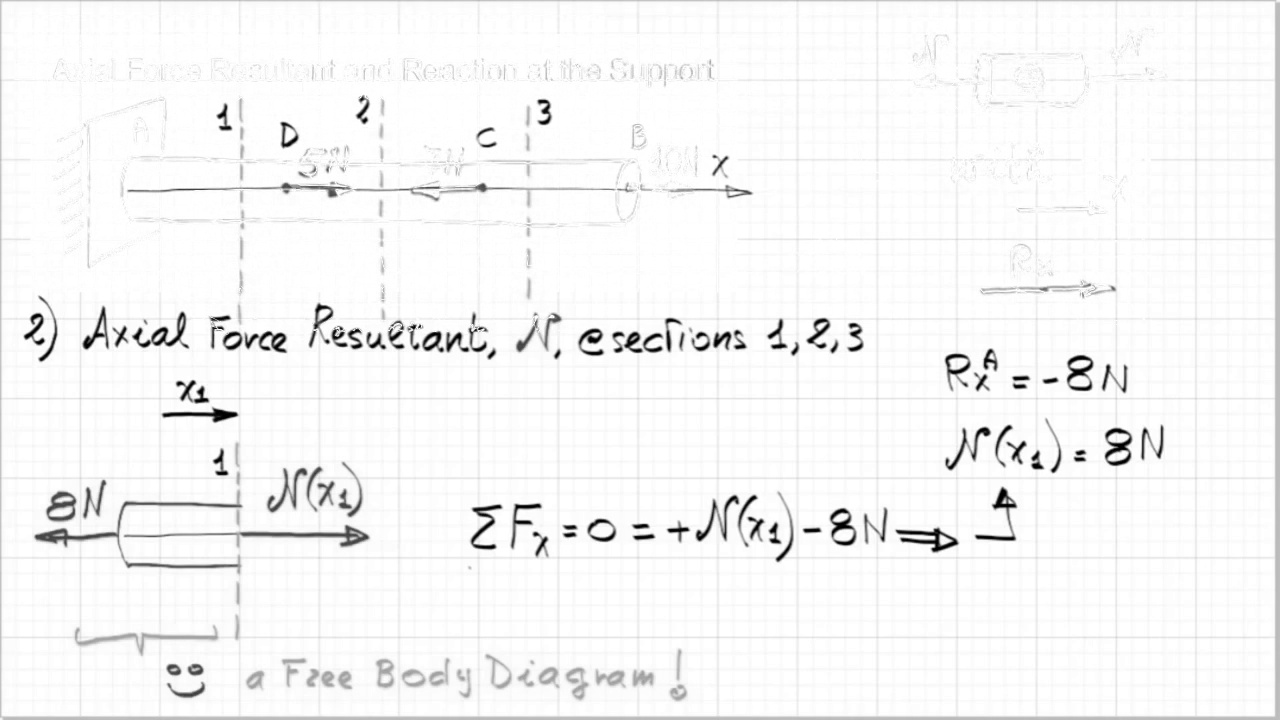 Axial Force Resultant and Reaction at the Support
1 2 3
A D C B
5N 10N x
N N
x
Rx
2) Axial Force Resultant, N, @ sections 1, 2, 3
x1
Rx^A = -8N
N(x1) = 8N
1
8N N(x1)
ΣFx = 0 = +N(x1) - 8N ⇒
a Free Body Diagram!